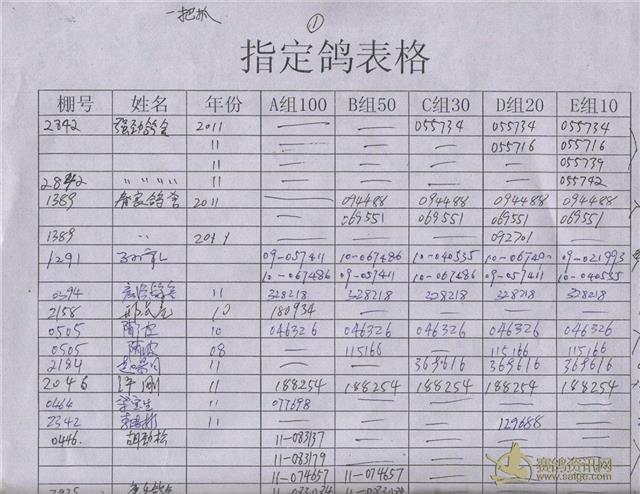 一把抓 ①
指定鸽表格
棚号 姓名 年份 A组100 B组50 C组30 D组20 E组10
2342 强劲鸽舍 2011 — — 055734 055734 055734
11 — — — 055716 055716
11 — — — — 055739
2842 " " " " 11 — — — — 055742
1389 鸽舍 2011 — 094488 094488 094488 094488
069551 069551 069551 069551
1389 " 2011 — — — 092701 —
1291 09-057411 10-067486 10-040335 10-06740 09-021993
10-067486 09-057411 10-067486 09-057411 10-040335
0394 11 328218 328218 328218 328218 328218
2158 10 180934 — — — —
0505 10 046326 046326 046326 046326 046326
0505 08 — 115166 — 115166 115166
2184 11 — — 369616 369616 369616
2046 11 188254 188254 188254 188254 188254
0464 11 077698 — — — —
2342 11 — — — 129688 —
0446. 胡劲松 11-083137 — — — —
11-083179 — — — —
11-074657 11-074657 — —
11-083034 11-083038
赛鸽资讯网
www.saige.com